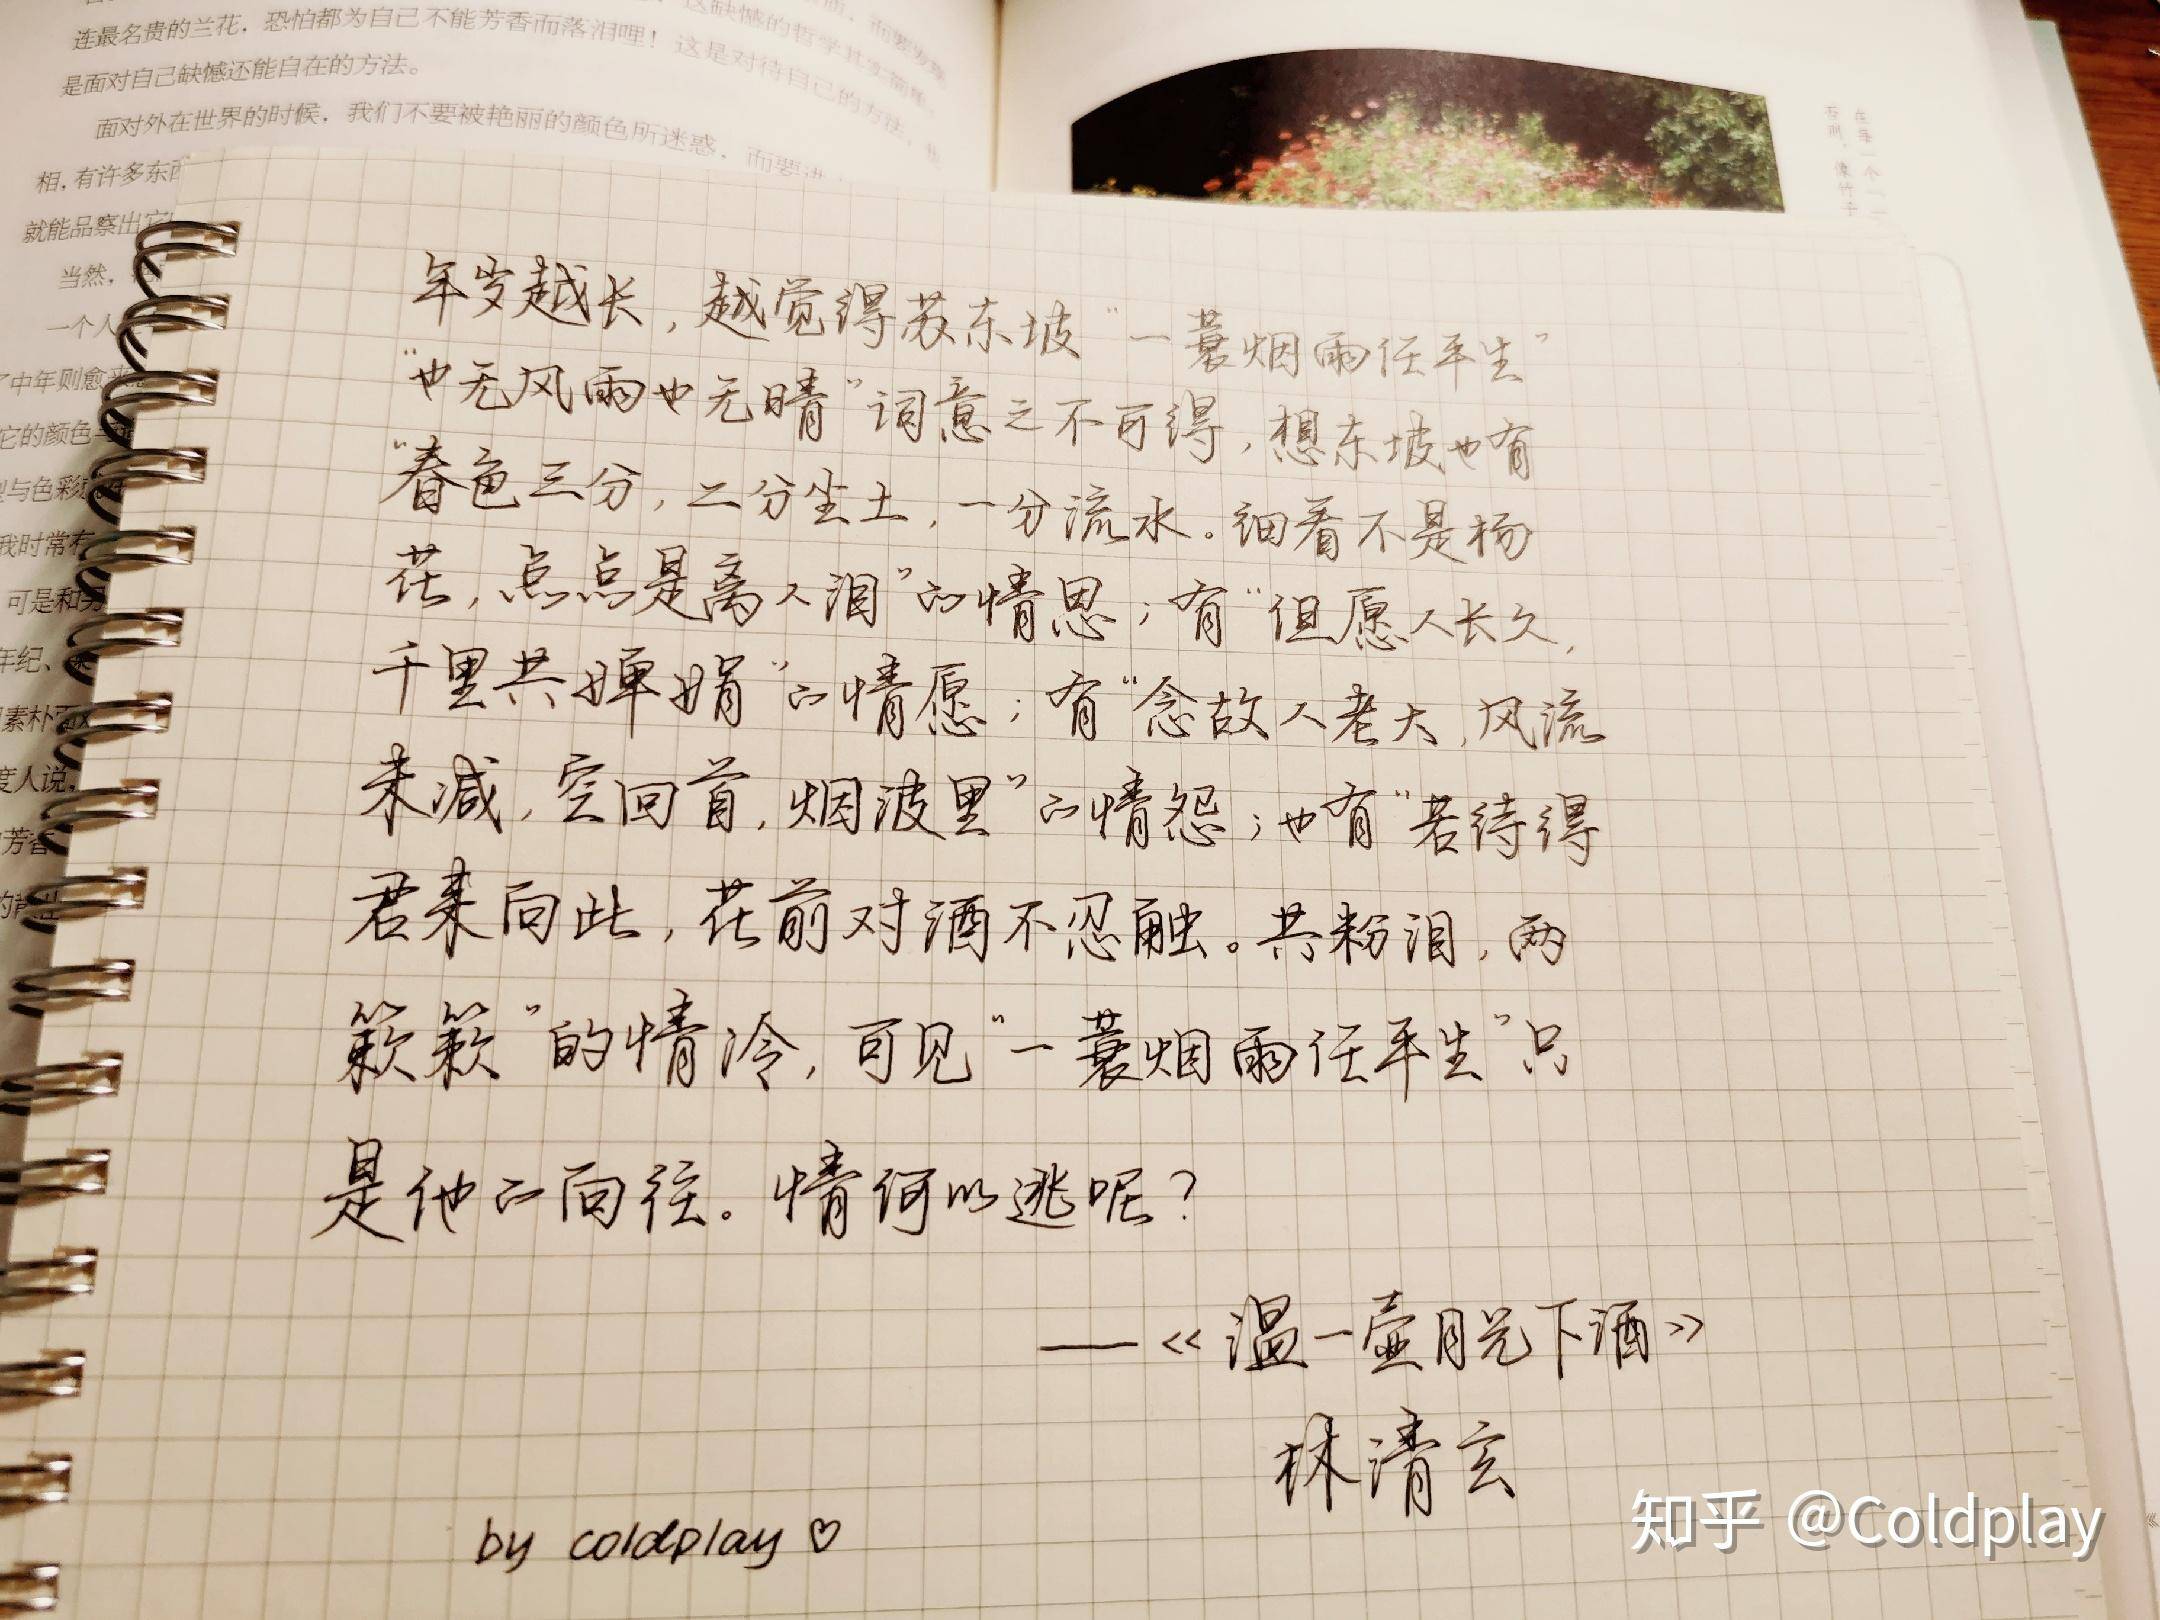 连最名贵的兰花，恐怕都为自己不能芳香而落泪哩！这是对待自己的方法，也
是面对自己缺憾还能自在的方法。
面对外在世界的时候，我们不要被艳丽的颜色所迷惑，而要进
相，有许多东西
就能品察出它
当然，
一个人
了中年则愈来
它的颜色
与色彩
我时常有
可是和
年纪、
素朴
度人说，
芳香
年岁越长，越觉得苏东坡“一蓑烟雨任平生”
“也无风雨也无晴”词意之不可得，想东坡也有
“春色三分，二分尘土，一分流水。细看不是杨
花，点点是离人泪”的情思；有“但愿人长久，
千里共婵娟”的情愿；有“念故人老大，风流
未减，空回首，烟波里”的情怨；也有“若待得
君来向此，花前对酒不忍触。共粉泪，两
簌簌”的情冷，可见“一蓑烟雨任平生”只
是他的向往。情何以逃呢？
——《温一壶月光下酒》
林清玄
by coldplay ♡
知乎 @Coldplay